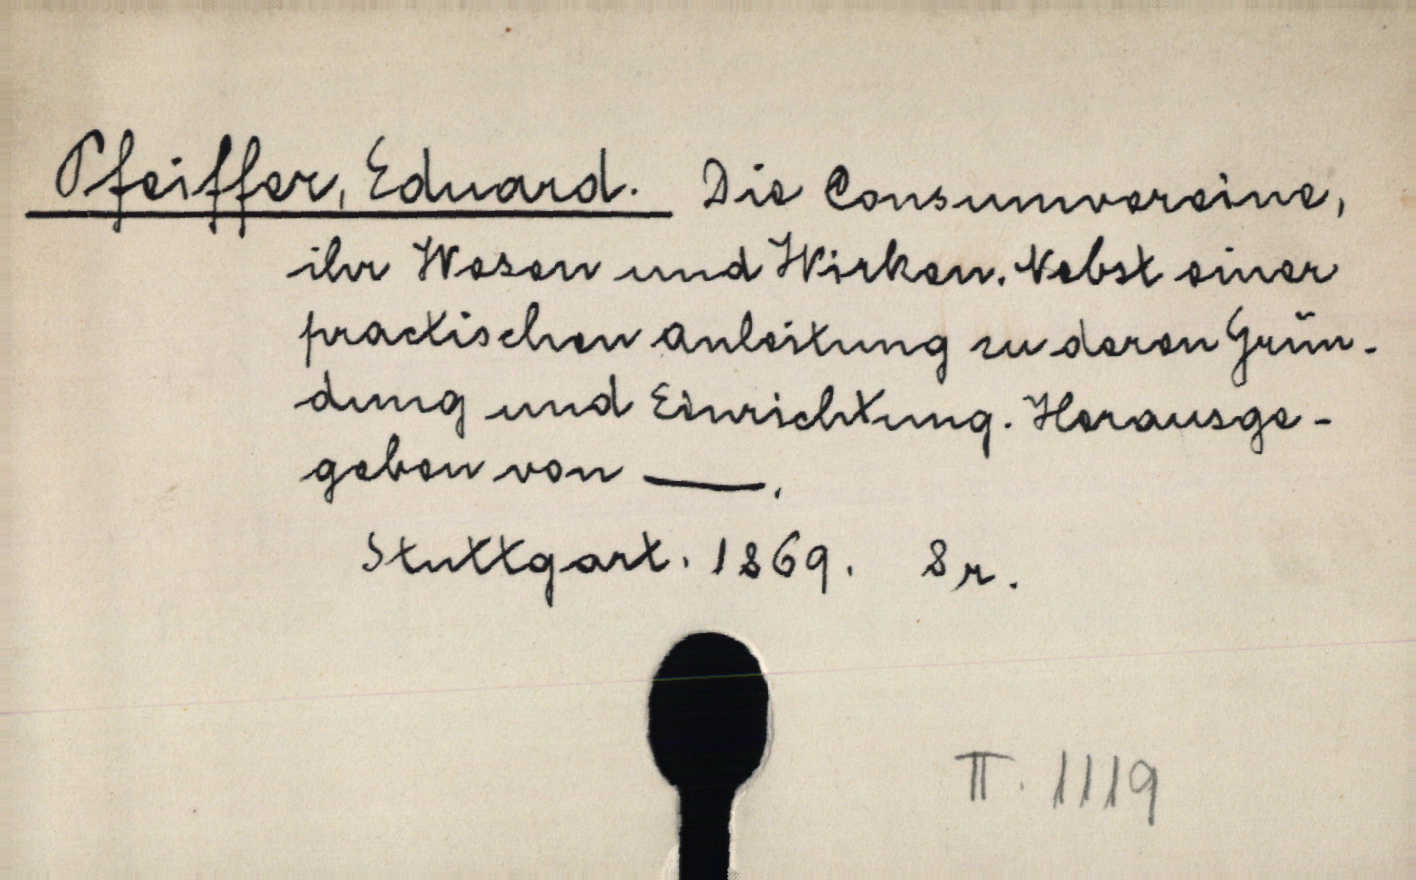 Pfeiffer, Eduard. Die Consumvereine,
ihr Wesen und Wirken. Nebst einer
practischen Anleitung zu deren Grün-
dung und Einrichtung. Herausge-
geben von —.
Stuttgart. 1869. 8r.
II. 1119